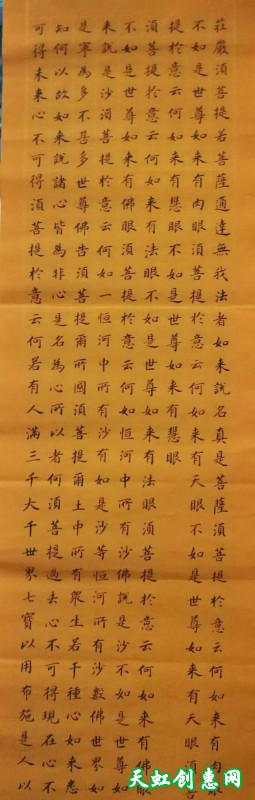 莊嚴須菩提若菩薩通達無我法者如来說名真是菩薩須菩提於意云何如来有肉眼
不如是世尊如来有肉眼須菩提於意云何如来有天眼不如是世尊如来有天眼須菩
提於意云何如来有慧眼不如是世尊如来有慧眼
須菩提於意云何如来有法眼不如是世尊如来有法眼須菩提於意云何如来有佛眼
不如是世尊如来有佛眼須菩提於意云何如恒河中所有沙佛說是沙不如是世尊如
来說是沙須菩提於意云何如一恒河中所有沙有如是沙等恒河所有沙數佛世界如
是寧為多不甚多世尊佛告須菩提爾所國須菩提爾土中所有衆生若千種心如来悉
知何以故如来說諸心皆為非心是名為心所以者何須菩提過去心不可得現在心不
可得未来心不可得須菩提於意云何若有人滿三千大千世界七寶以用布施是人以
天虹创惠网